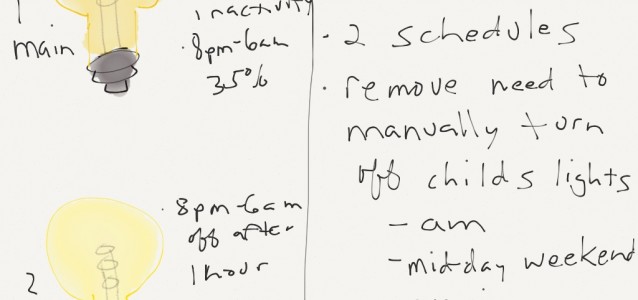 1
main
inactivity
· 8pm-6am
35%
2
· 8pm-6am
off after
1 hour
· 2 schedules
· remove need to
manually turn
off childs lights
- am
- mid-day weekend